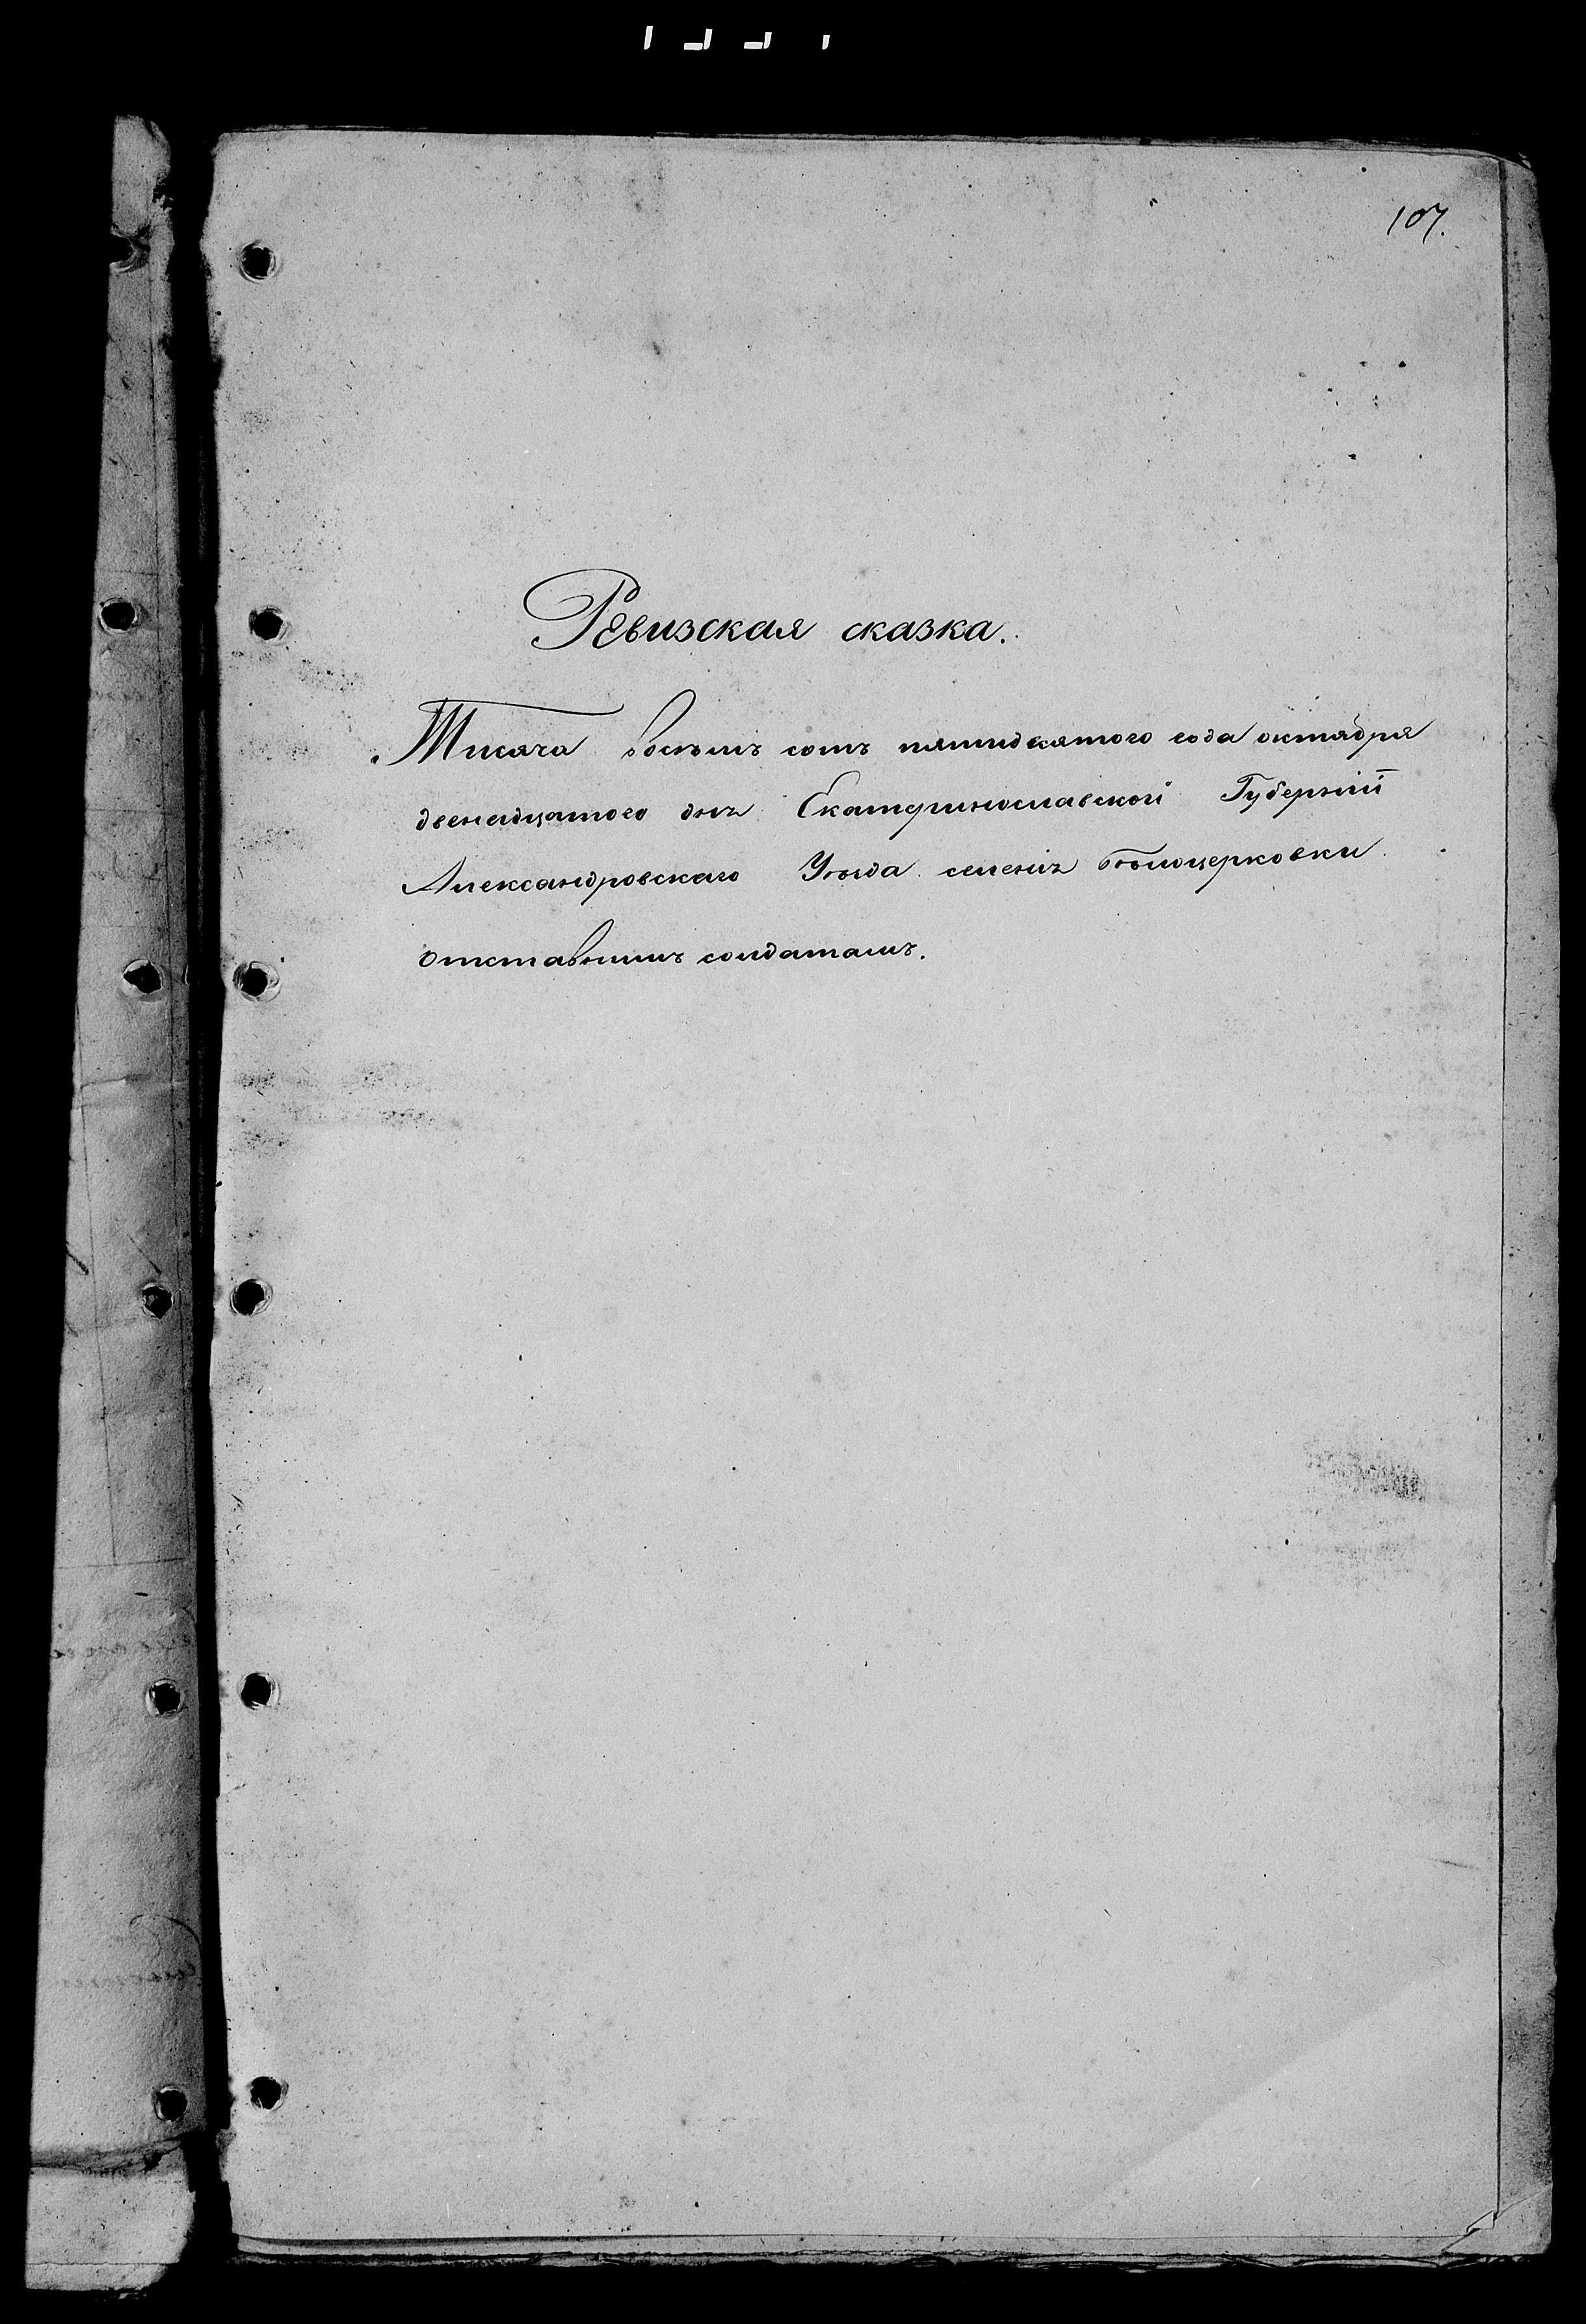 107.
Ревизская сказка.
Тисяча восѣмъ сотъ пятидесятого года октября
двенадцатого дня Екатеринославской Губерніи
Александровскаго Уѣзда селенія Бѣлоцерковки
отставнымъ солдатамъ.